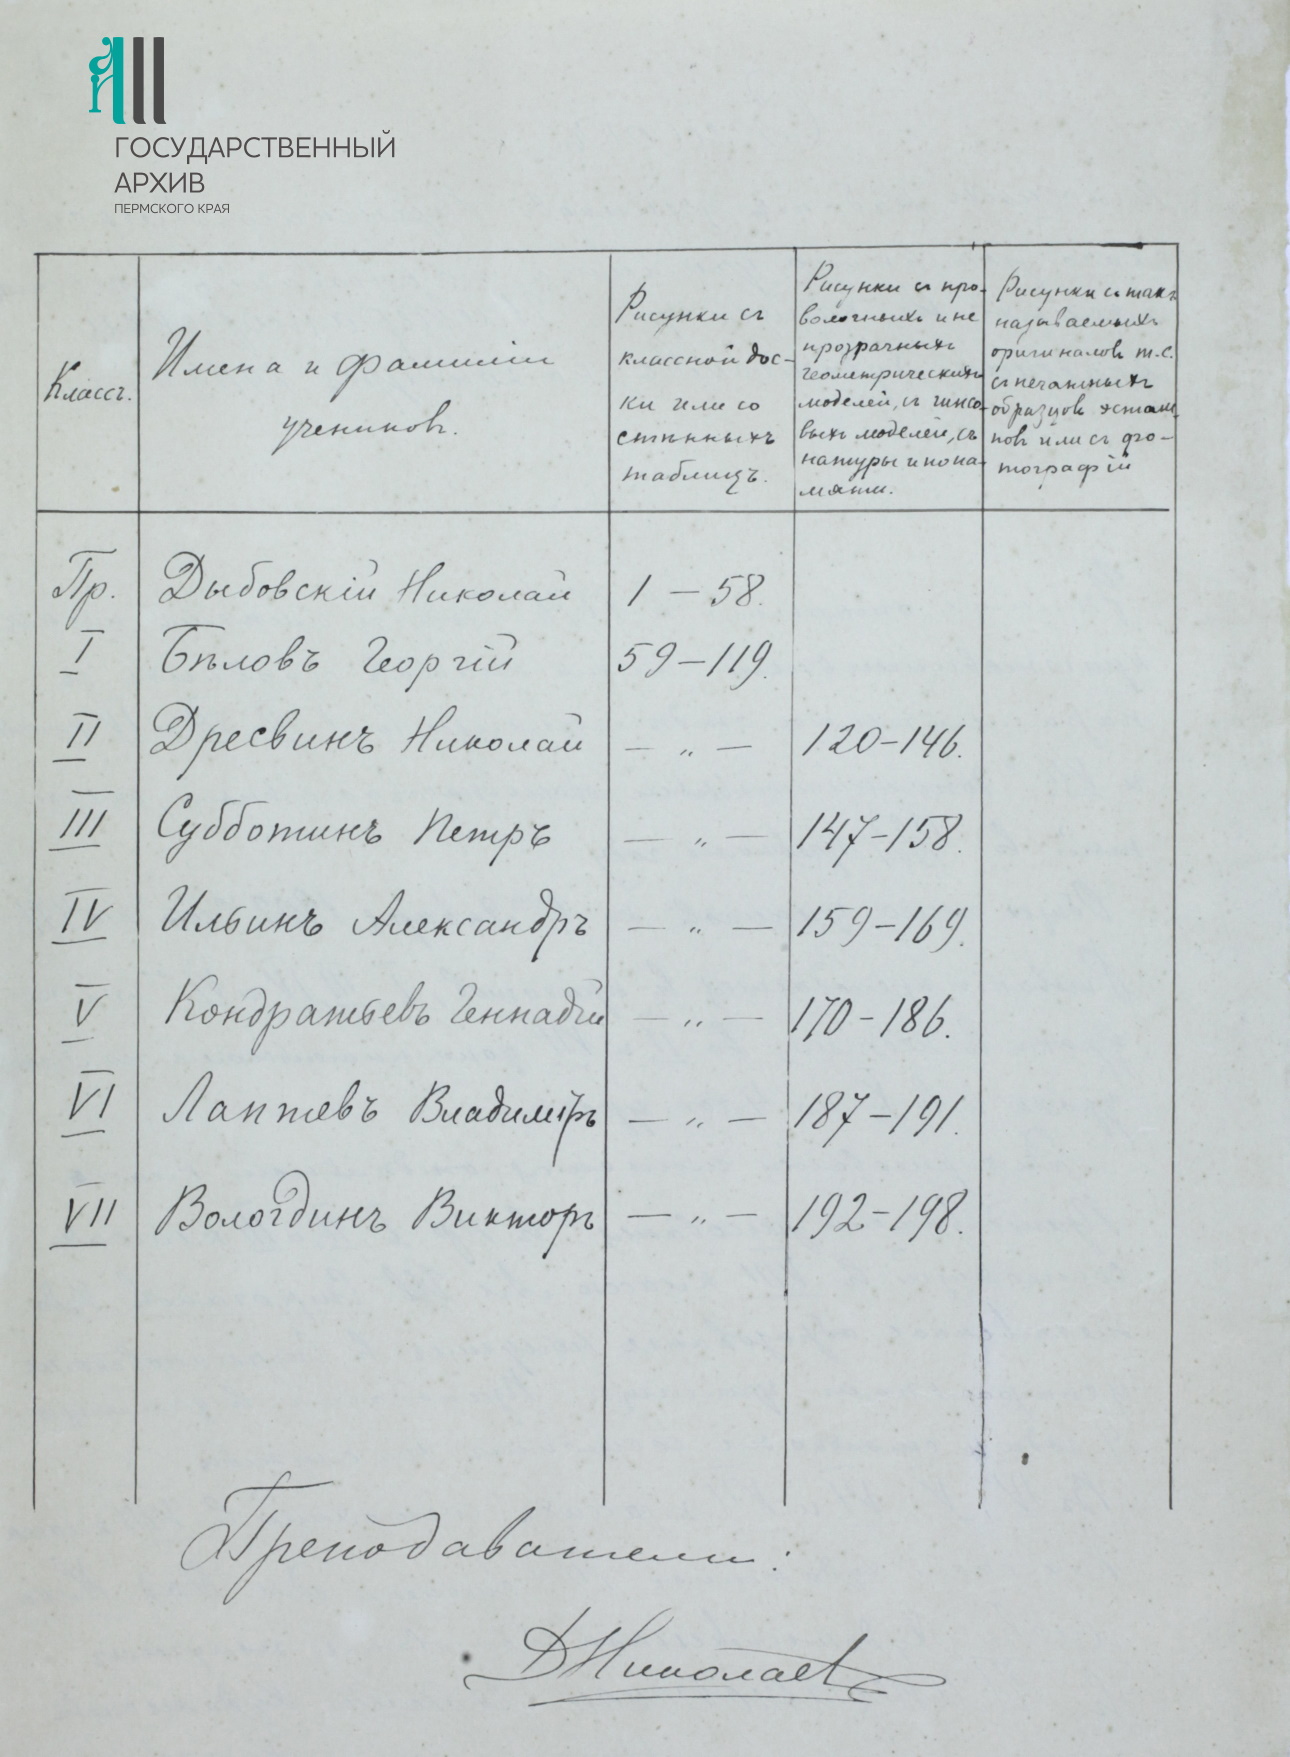 ГОСУДАРСТВЕННЫЙ
АРХИВ
ПЕРМСКОГО КРАЯ
Классъ.
Имена и фамиліи
учениковъ.
Рисунки съ
классной дос-
ки или со
стѣнныхъ
таблицъ.
Рисунки съ про-
волочныхъ и не
прозрачныхъ
геометрическихъ
моделей, съ гипсо-
выхъ моделей, съ
натуры и по па-
мяти.
Рисунки съ такъ
называемыхъ
оригиналовъ т.е.
съ печатныхъ
образцовъ эстам-
повъ или съ фо-
тографій
Пр. Дыбовскій Николай 1 – 58.
I Бѣловъ Георгій 59 – 119.
II Дресвинъ Николай — „ — 120 – 146.
III Субботинъ Петръ — „ — 147 – 158.
IV Ильинъ Александръ — „ — 159 – 169.
V Кондратьевъ Геннадій — „ — 170 – 186.
VI Лаптевъ Владиміръ — „ — 187 – 191.
VII Вологдинъ Викторъ — „ — 192 – 198.
Преподаватели:
Д Николаев